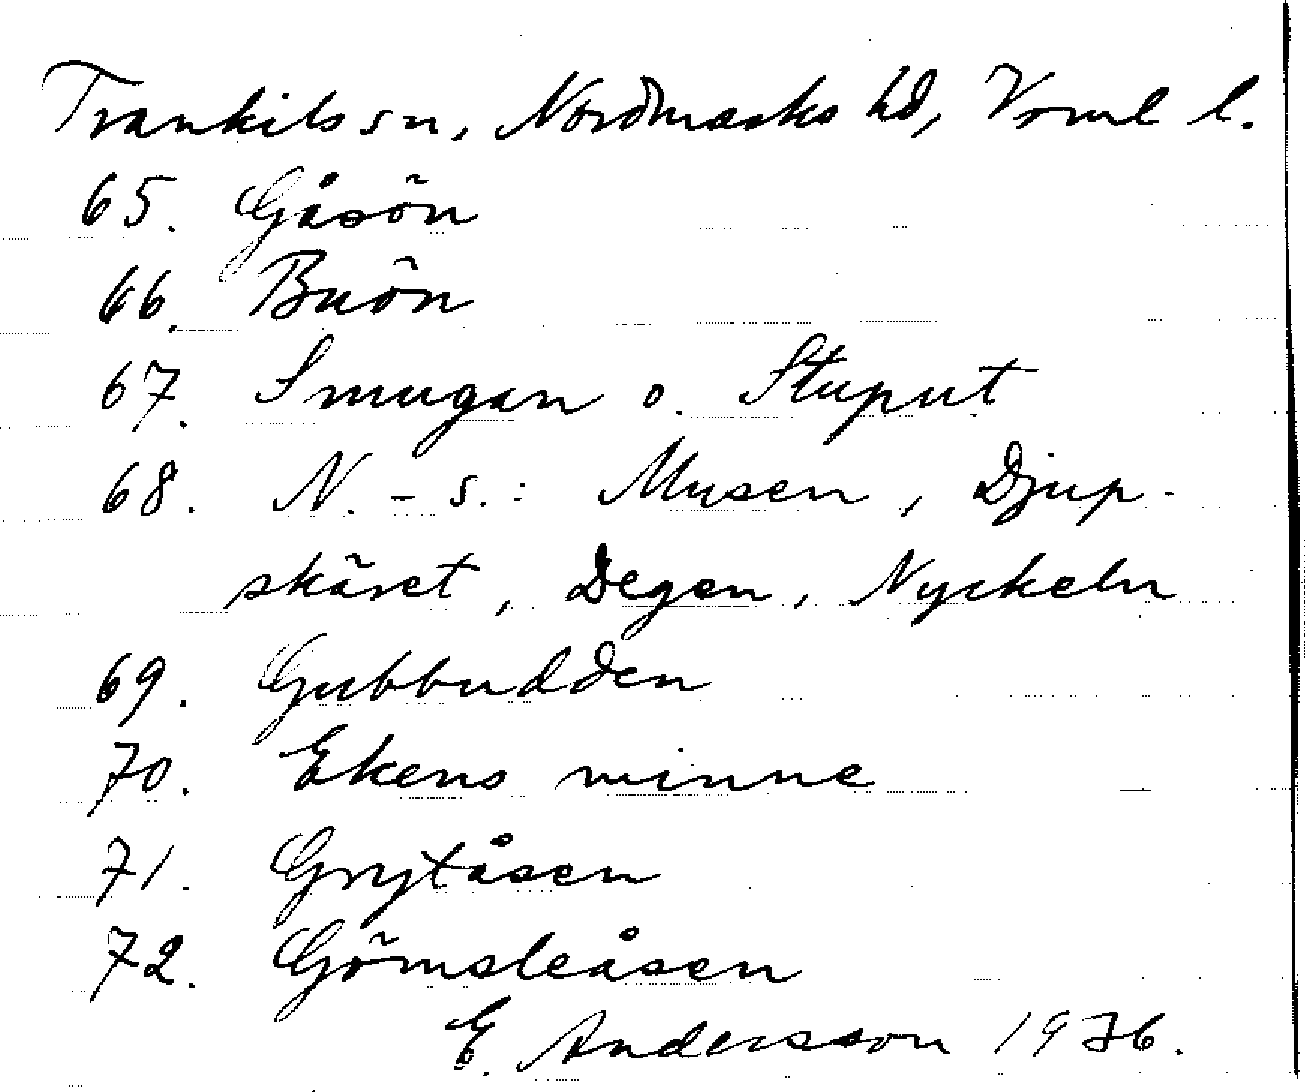 Trankils sn, Nordmarks hd, Vrml l.
65. Gåsön
66. Buön
67. Smugan o. Stuput
68. N. - s.: Musen, Djup-
skäret, Degen, Nyckeln
69. Gubbudden
70. Ekens minne
71. Grytåsen
72. Gömsleåsen
E. Andersson 1976.